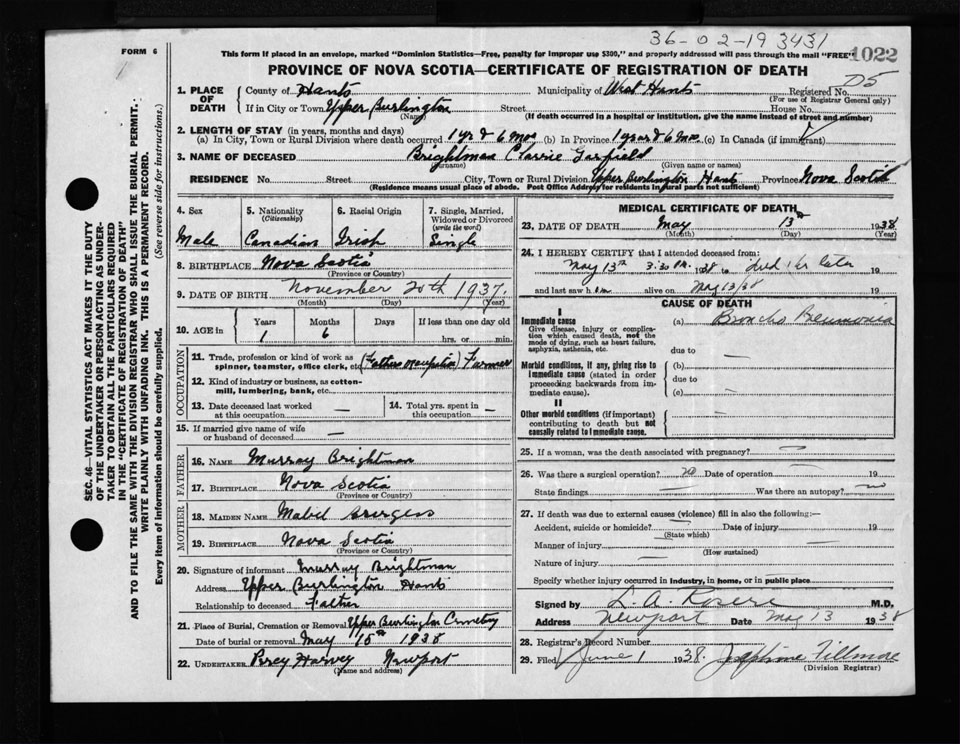 FORM 6
36-02-19 3431
This form if placed in an envelope, marked "Dominion Statistics—Free, penalty for improper use $300," and properly addressed will pass through the mail "FREE"
1022
PROVINCE OF NOVA SCOTIA—CERTIFICATE OF REGISTRATION OF DEATH
D5
1. PLACE OF DEATH County of Hants Municipality of West Hants Registered No.
(For use of Registrar General only)
If in City or Town Upper Burlington Street House No.
(Name) (If death occurred in a hospital or institution, give the name instead of street and number)
2. LENGTH OF STAY (in years, months and days)
(a) In City, Town or Rural Division where death occurred 1 yr & 6 Mos (b) In Province 1 year & 6 Mos (c) In Canada (if immigrant)
3. NAME OF DECEASED Brightman Garfield
(Surname) (Given name or names)
RESIDENCE No. Street City, Town or Rural Division Upper Burlington Hants Province Nova Scotia
(Residence means usual place of abode. Post Office Address for residents in rural parts not sufficient)
4. Sex
Male
5. Nationality
(Citizenship)
Canadian
6. Racial Origin
Irish
7. Single, Married, Widowed or Divorced
(write the word)
Single
8. BIRTHPLACE Nova Scotia
(Province or Country)
9. DATE OF BIRTH November 20th 1937.
(Month) (Day) (Year)
10. AGE in Years Months Days If less than one day old
1 6 hrs. or min.
OCCUPATION
11. Trade, profession or kind of work as spinner, teamster, office clerk, etc. (Fathers occupation) Farmer
12. Kind of industry or business, as cotton-mill, lumbering, bank, etc.
13. Date deceased last worked at this occupation —
14. Total yrs. spent in this occupation —
15. If married give name of wife or husband of deceased —
FATHER
16. NAME Murray Brightman
17. BIRTHPLACE Nova Scotia
(Province or Country)
MOTHER
18. MAIDEN NAME Mabel
19. BIRTHPLACE Nova Scotia
(Province or Country)
20. Signature of informant Murray Brightman
Address Upper Burlington Hants
Relationship to deceased Father
21. Place of Burial, Cremation or Removal Upper Burlington Cemetery
Date of burial or removal May 15th 1938
22. UNDERTAKER Harvey Newport
(Name and address)
MEDICAL CERTIFICATE OF DEATH
23. DATE OF DEATH May 13th 1938
(Month) (Day) (Year)
24. I HEREBY CERTIFY that I attended deceased from:
May 13th 3:30 P.M. 1938 to died later 19
and last saw h alive on May 13/38 19
CAUSE OF DEATH
I
Immediate cause (a) Broncho Pneumonia
Give disease, injury or complication which caused death, not the mode of dying, such as heart failure, asphyxia, asthenia, etc.
due to —
Morbid conditions, if any, giving rise to immediate cause (stated in order proceeding backwards from immediate cause).
(b)
due to —
(c)
II
Other morbid conditions (if important) contributing to death but not causally related to immediate cause.
25. If a woman, was the death associated with pregnancy? —
26. Was there a surgical operation? no Date of operation — 19
State findings Was there an autopsy? no
27. If death was due to external causes (violence) fill in also the following:—
Accident, suicide or homicide? Date of injury 19
(State which)
Manner of injury
(How sustained)
Nature of injury
Specify whether injury occurred in industry, in home, or in public place
Signed by L. A. M.D.
Address Newport Date May 13 1938
28. Registrar's Record Number
29. Filed June 1 1938. Josphine Fillmore
(Division Registrar)
SEC. 46—VITAL STATISTICS ACT MAKES IT THE DUTY
OF THE UNDERTAKER OR PERSON ACTING AS UNDER-
TAKER TO OBTAIN ALL THE PARTICULARS REQUIRED
IN THE "CERTIFICATE OF REGISTRATION OF DEATH"
AND TO FILE THE SAME WITH THE DIVISION REGISTRAR WHO SHALL ISSUE THE BURIAL PERMIT.
WRITE PLAINLY WITH UNFADING INK. THIS IS A PERMANENT RECORD.
Every item of information should be carefully supplied. (See reverse side for instructions.)